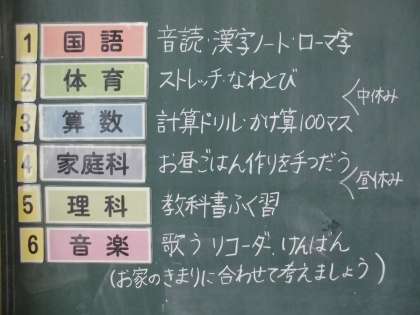 1 国語 音読・漢字ノート・ローマ字
2 体育 ストレッチ・なわとび
中休み
3 算数 計算ドリル・かけ算100マス
4 家庭科 お昼ごはん作りを手つだう
昼休み
5 理科 教科書ふく習
6 音楽 歌う リコーダ、けんばん
(お家のきまりに合わせて考えましょう)